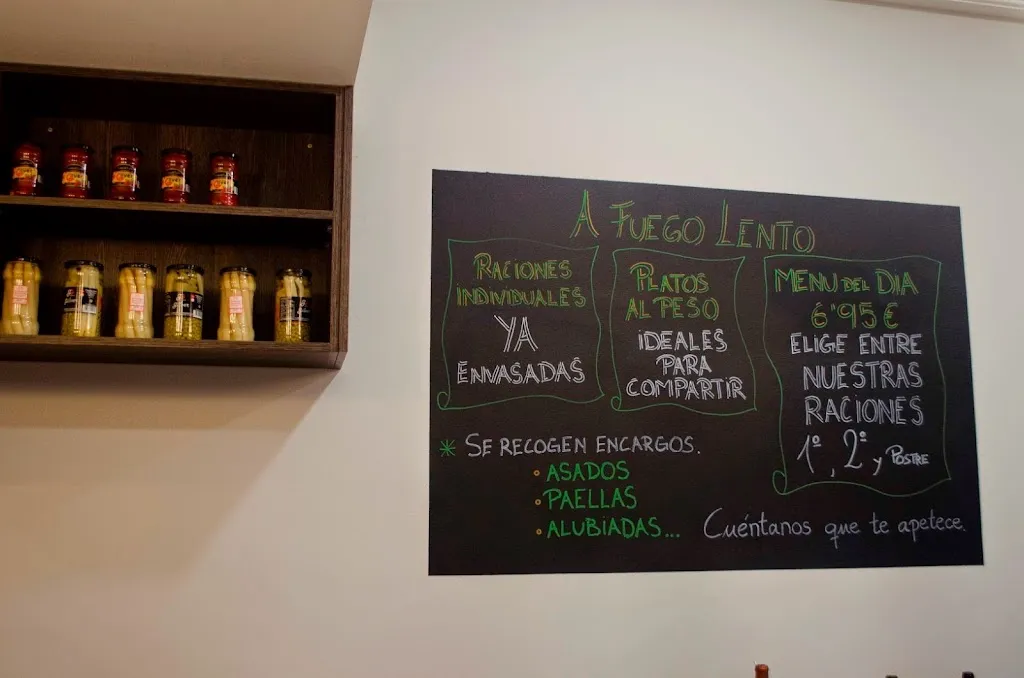 A FUEGO LENTO
RACIONES
INDIVIDUALES
YA
ENVASADAS
PLATOS
AL PESO
IDEALES
PARA
COMPARTIR
MENU DEL DIA
6'95 €
ELIGE ENTRE
NUESTRAS
RACIONES
1º, 2º y POSTRE
* SE RECOGEN ENCARGOS.
• ASADOS
• PAELLAS
• ALUBIADAS...
Cuéntanos que te apetece.